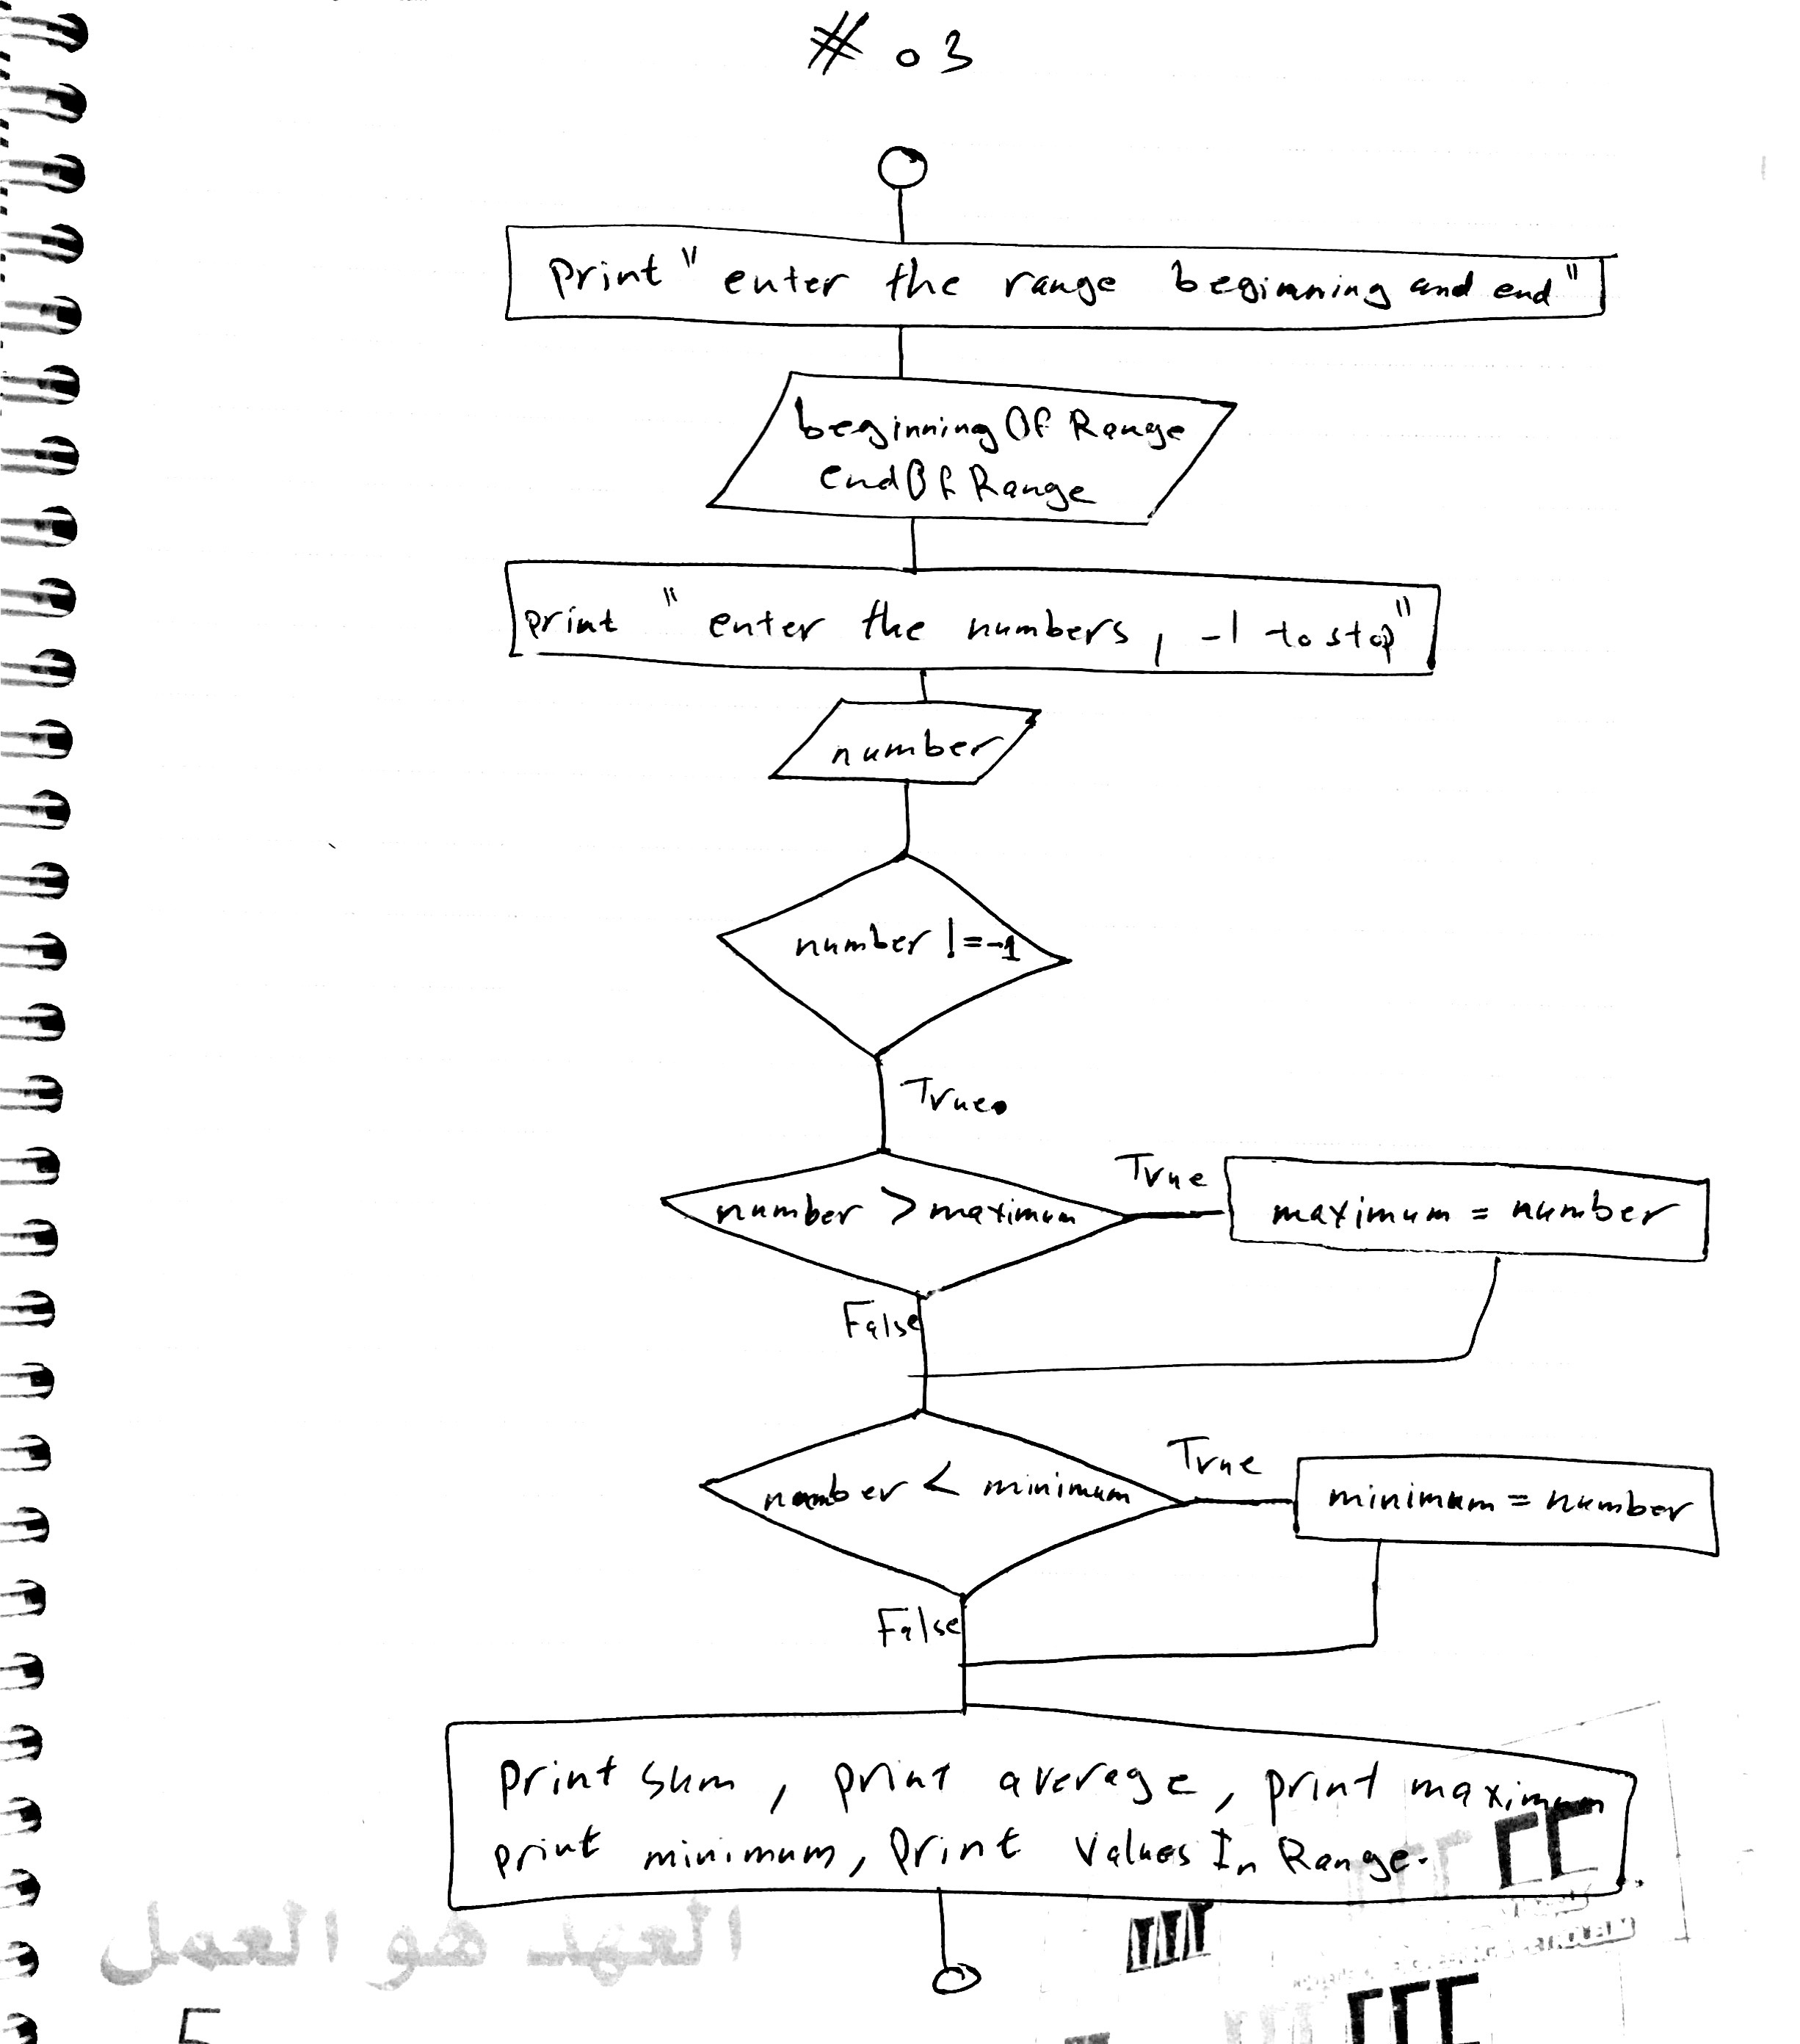 # 03
print "enter the range beginning and end"
beginningOfRange
endOfRange
print "enter the numbers, -1 to stop"
number
number != -1
True
number > maximum
True
maximum = number
False
number < minimum
True
minimum = number
False
print sum, print average, print maximum
print minimum, print valuesInRange.
العهد هو العمل
5